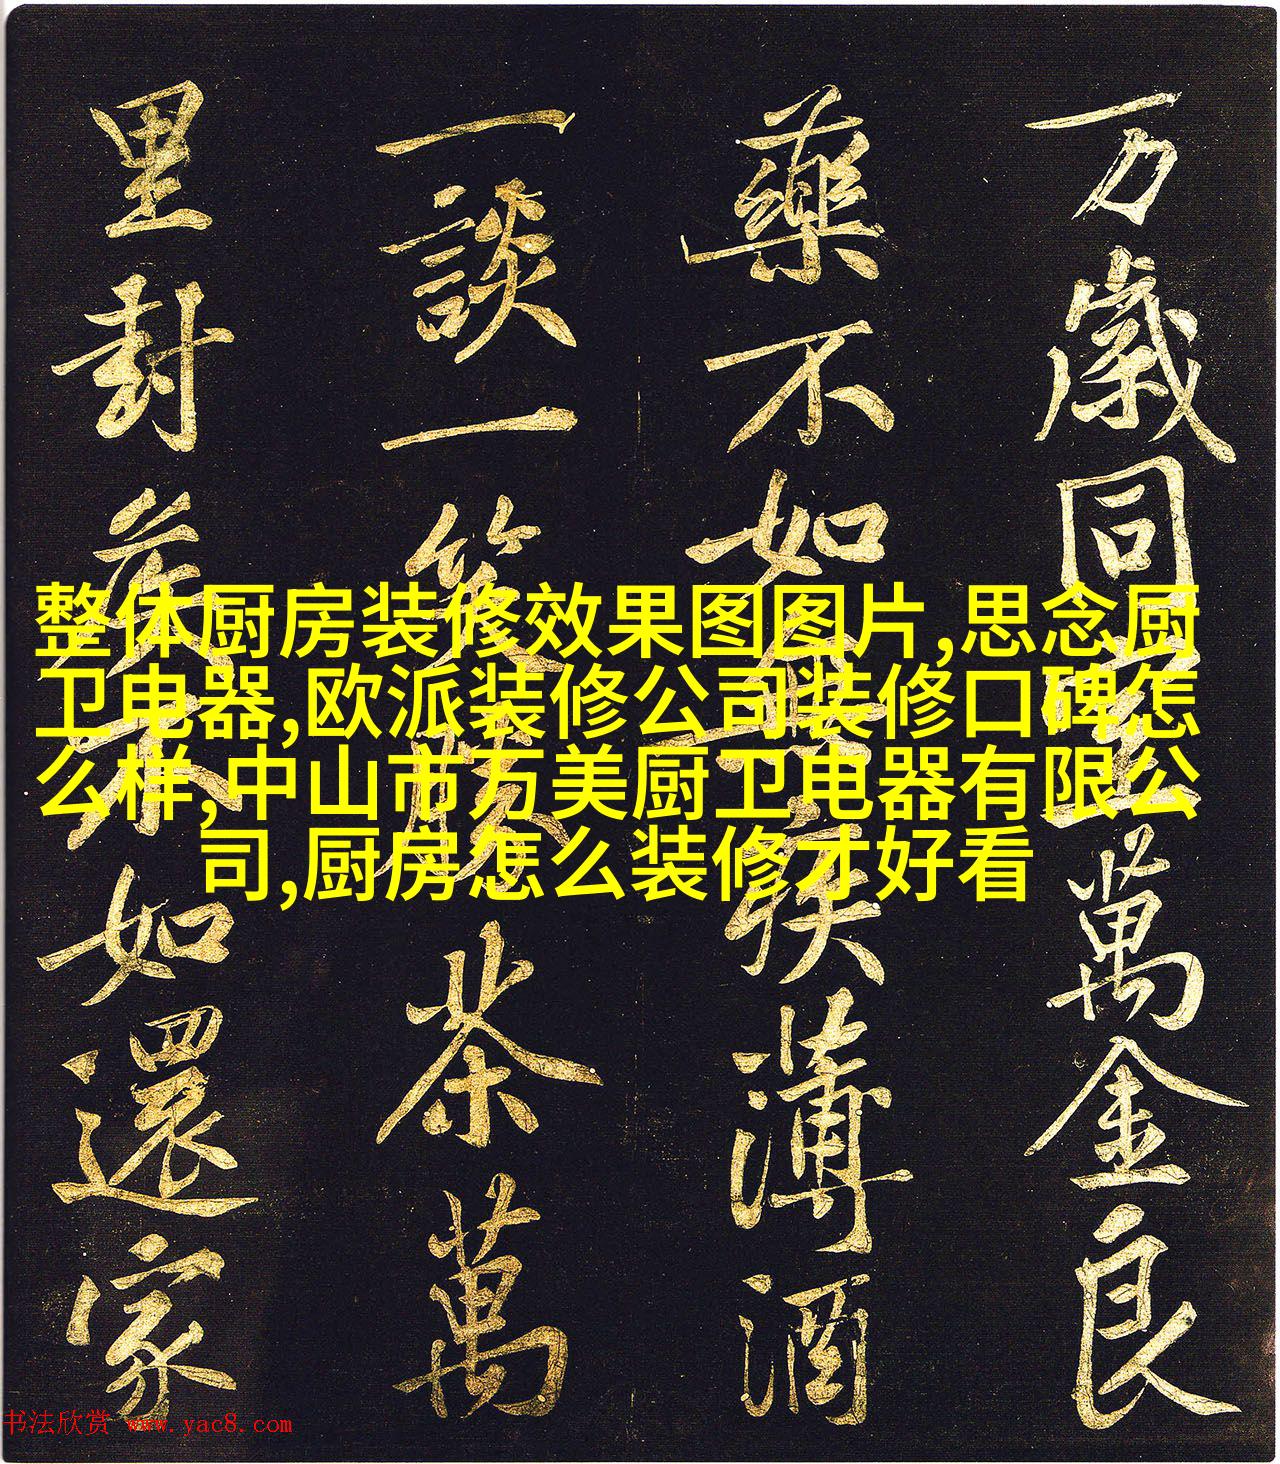 万歲同萬金良
藥不如無疾薄酒
一談一笑勝茶萬
里封侯不如還家
整体厨房装修效果图图片,思念厨
卫电器,欧派装修公司装修口碑怎
么样,中山市万美厨卫电器有限公
司,厨房怎么装修才好看
书法欣赏 www.yac8.com